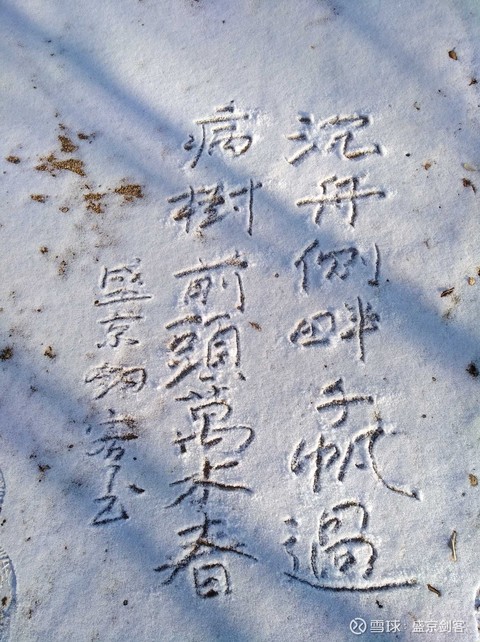 沉舟側畔千帆過
病樹前頭萬木春
盛京劍客玉
雪球：盛京剑客